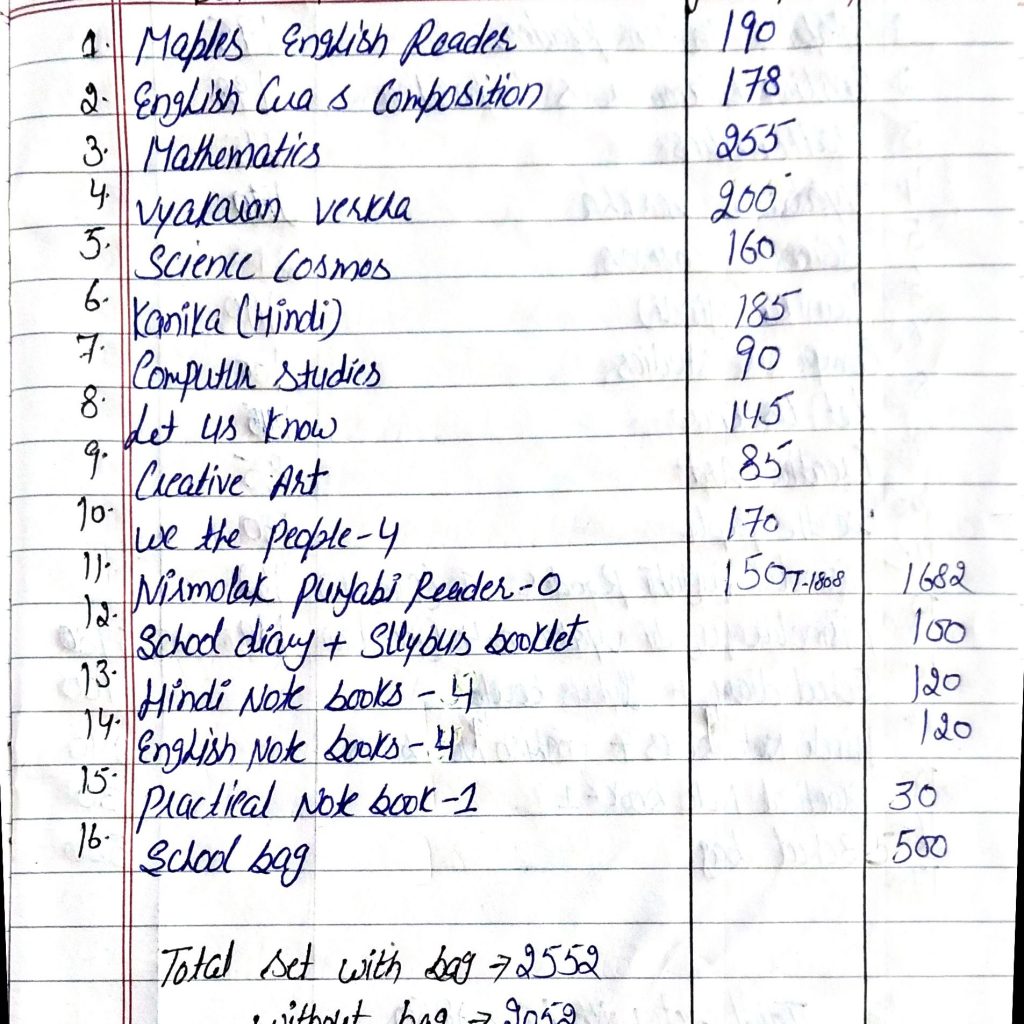 1. Maples English Reader 190
2. English Gra & Composition 178
3. Mathematics 255
4. Vyakaran verkha 200
5. Science Cosmos 160
6. Kanika (Hindi) 185
7. Computer studies 90
8. Let us Know 145
9. Creative Art 85
10. We the people-4 170
11. Nirmolak Punjabi Reader-0 150 T-1808 1682
12. School diary + Sllybus booklet 100
13. Hindi Note books - 4 120
14. English Note books - 4 120
15. Practical Note book-1 30
16. School bag 500
Total set with bag → 2552
without bag → 2052